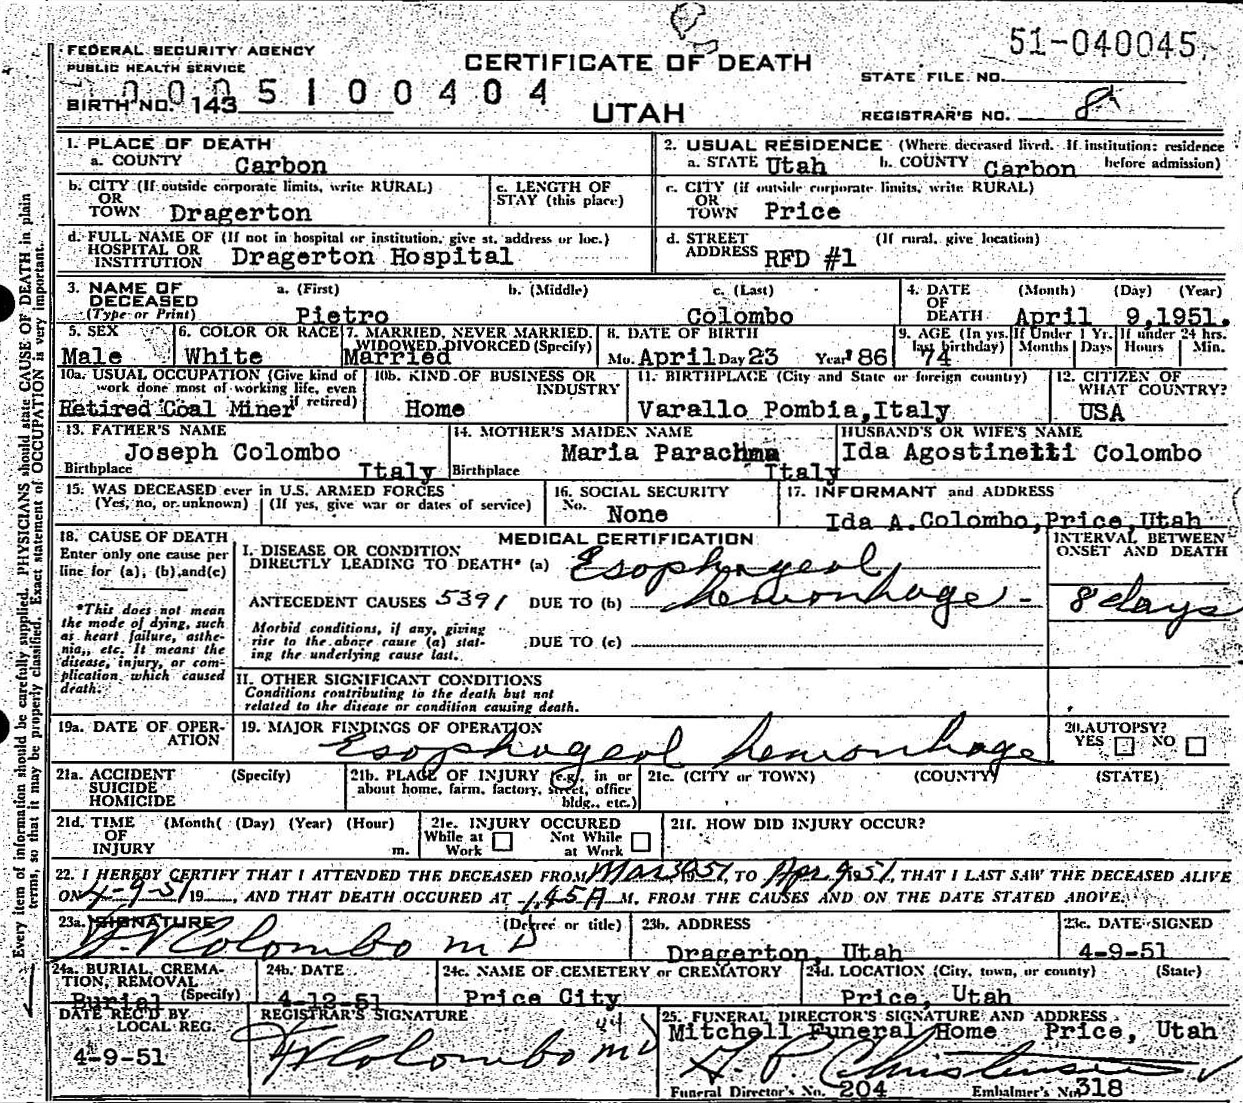 51-040045
FEDERAL SECURITY AGENCY
PUBLIC HEALTH SERVICE
CERTIFICATE OF DEATH
STATE FILE NO.
0005100404
BIRTH NO. 143
UTAH
REGISTRAR'S NO. 8
1. PLACE OF DEATH
a. COUNTY Carbon
2. USUAL RESIDENCE (Where deceased lived. If institution: residence before admission)
a. STATE Utah b. COUNTY Carbon
b. CITY (If outside corporate limits, write RURAL) OR TOWN Dragerton
c. LENGTH OF STAY (this place)
c. CITY (if outside corporate limits, write RURAL) OR TOWN Price
d. FULL NAME OF (If not in hospital or institution, give st. address or loc.) HOSPITAL OR INSTITUTION Dragerton Hospital
d. STREET ADDRESS (If rural, give location) RFD #1
3. NAME OF DECEASED (Type or Print)
a. (First) Pietro b. (Middle) c. (Last) Colombo
4. DATE OF DEATH (Month) (Day) (Year) April 9,1951.
5. SEX Male
6. COLOR OR RACE White
7. MARRIED, NEVER MARRIED, WIDOWED, DIVORCED (Specify) Married
8. DATE OF BIRTH Mo. April Day 23 Year 86
9. AGE (In yrs. last birthday) 74 If Under 1 Yr. Months Days If under 24 hrs. Hours Min.
10a. USUAL OCCUPATION (Give kind of work done most of working life, even if retired) Retired Coal Miner
10b. KIND OF BUSINESS OR INDUSTRY Home
11. BIRTHPLACE (City and State or foreign country) Varallo Pombia,Italy
12. CITIZEN OF WHAT COUNTRY? USA
13. FATHER'S NAME Joseph Colombo
Birthplace Italy
14. MOTHER'S MAIDEN NAME Maria
Birthplace Italy
HUSBAND'S OR WIFE'S NAME Ida Agostinetti Colombo
15. WAS DECEASED ever in U.S. ARMED FORCES (Yes, no, or unknown) (If yes, give war or dates of service)
16. SOCIAL SECURITY No. None
17. INFORMANT and ADDRESS Ida A.Colombo,Price,Utah
18. CAUSE OF DEATH
Enter only one cause per line for (a), (b) and (c)
*This does not mean the mode of dying, such as heart failure, asthenia, etc. It means the disease, injury, or complication which caused death.
MEDICAL CERTIFICATION
INTERVAL BETWEEN ONSET AND DEATH
I. DISEASE OR CONDITION DIRECTLY LEADING TO DEATH* (a) Esophageal
ANTECEDENT CAUSES 5391 DUE TO (b) hemorrhage - 8 days
Morbid conditions, if any, giving rise to the above cause (a) stating the underlying cause last. DUE TO (c)
II. OTHER SIGNIFICANT CONDITIONS
Conditions contributing to the death but not related to the disease or condition causing death.
19a. DATE OF OPERATION
19. MAJOR FINDINGS OF OPERATION Esophageal hemorrhage
20. AUTOPSY? YES NO
21a. ACCIDENT SUICIDE HOMICIDE (Specify)
21b. PLACE OF INJURY (e.g., in or about home, farm, factory, street, office bldg., etc.)
21c. (CITY or TOWN) (COUNTY) (STATE)
21d. TIME OF INJURY (Month( (Day) (Year) (Hour) m.
21e. INJURY OCCURED While at Work Not While at Work
21f. HOW DID INJURY OCCUR?
22. I HEREBY CERTIFY THAT I ATTENDED THE DECEASED FROM Mar 30 51, TO Apr. 9, 51, THAT I LAST SAW THE DECEASED ALIVE
ON 4-9-51 19, AND THAT DEATH OCCURED AT 1.45 A M. FROM THE CAUSES AND ON THE DATE STATED ABOVE.
23a. SIGNATURE (Degree or title) Colombo M D
23b. ADDRESS Dragerton, Utah
23c. DATE SIGNED 4-9-51
24a. BURIAL, CREMATION, REMOVAL (Specify) Burial
24b. DATE 4-12-51
24c. NAME OF CEMETERY or CREMATORY Price City
24d. LOCATION (City, town, or county) (State) Price, Utah
DATE REC'D BY LOCAL REG. 4-9-51
REGISTRAR'S SIGNATURE Colombo M D
25. FUNERAL DIRECTOR'S SIGNATURE AND ADDRESS
Mitchell Funeral Home Price, Utah
Christensen
Funeral Director's No. 204 Embalmer's No. 318
Every item of information should be carefully supplied. PHYSICIANS should state CAUSE OF DEATH in plain
terms, so that it may be properly classified. Exact statement of OCCUPATION is very important.